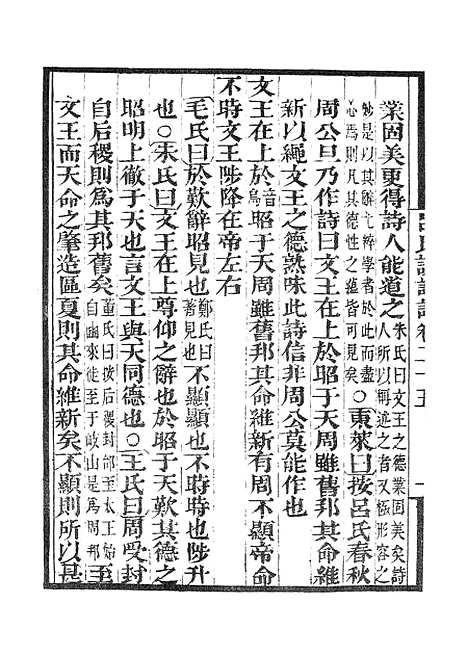 呂氏讀詩記卷二十五
業固美更得詩人能道之朱氏曰文王之德業固美矣詩人所以稱述之者又極形容之
妙是以其辭粹學者於此而盡心焉則凡其德性之蘊皆可見矣○東萊曰按呂氏春秋
周公旦乃作詩曰文王在上於昭于天周雖舊邦其命維
新以繩文王之德熟味此詩信非周公莫能作也
文王在上於音烏昭于天周雖舊邦其命維新有周不顯帝命
不時文王陟降在帝左右
毛氏曰於歎辭昭見也鄭氏曰著見也不顯顯也不時時也陟升
也○朱氏曰文王在上尊仰之辭也於昭于天歎其德之
昭明上徹于天也言文王與天同德也○王氏曰周受封
自后稷則為其邦舊矣董氏曰按后稷封邰至太王始自豳來徙至于岐山是為周邦至
文王而天命之肇造區夏則其命維新矣不顯則所以甚